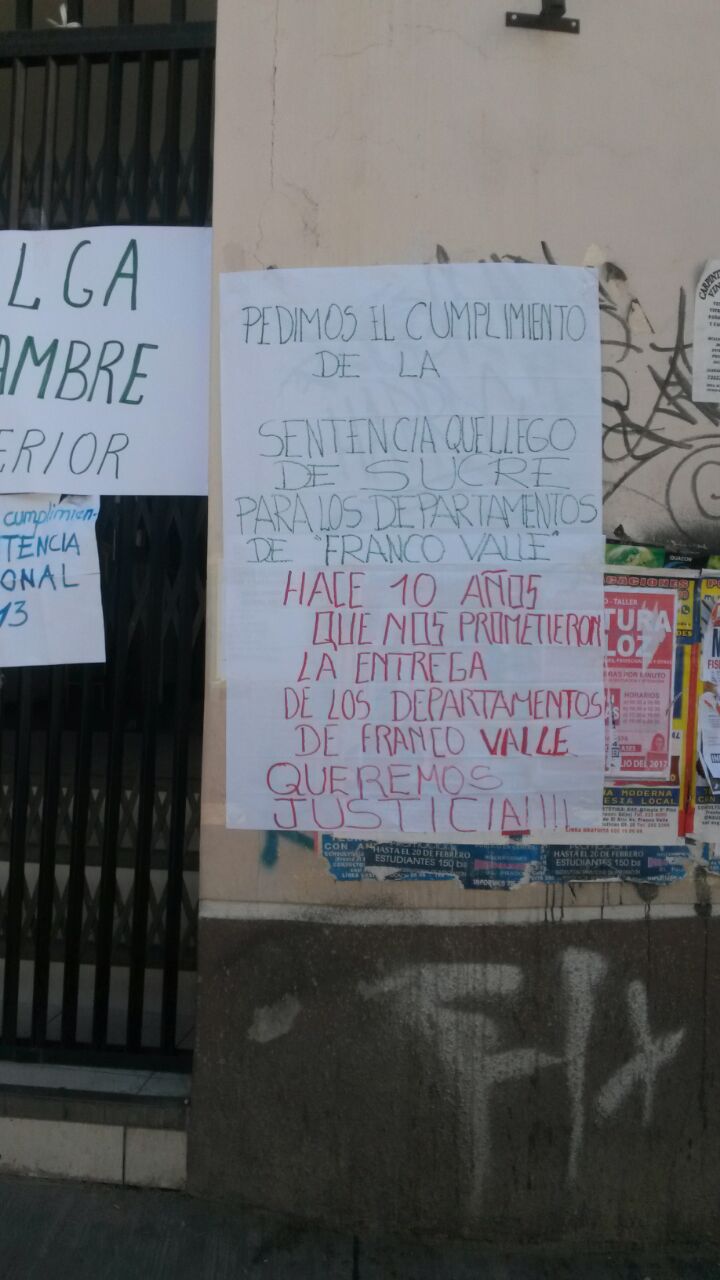 LGA
AMBRE
ERIOR
cumplimien-
TENCIA
ONAL
13
PEDIMOS EL CUMPLIMIENTO
DE LA
SENTENCIA QUE LLEGO
DE SUCRE
PARA LOS DEPARTAMENTOS
DE "FRANCO VALLE"
HACE 10 AÑOS
QUE NOS PROMETIERON
LA ENTREGA
DE LOS DEPARTAMENTOS
DE FRANCO VALLE
QUEREMOS
JUSTICIA!!!!
CARPINT
ACACIONES
TALLER
TURA
LOZ
POR MINUTO
HORARIOS
JLIO DEL 2017
MODERNA
ESIA LOCAL
HASTA EL 20 DE FEBRERO
ESTUDIANTES 150 Bs
HASTA EL 20 DE FEBRERO
ESTUDIANTES 150 Bs